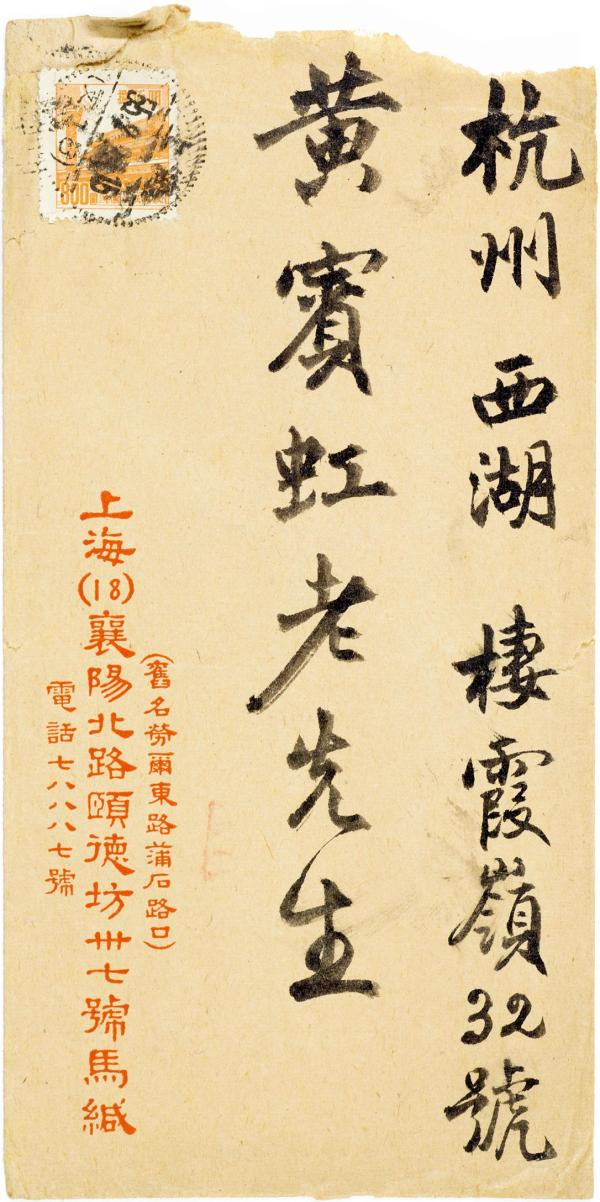 杭州 西湖 棲霞嶺32號
黃賓虹老先生
(舊名勞爾東路蒲石路口)
上海(18)襄陽北路頤德坊卅七號馬緘
電話七八八八七號
800